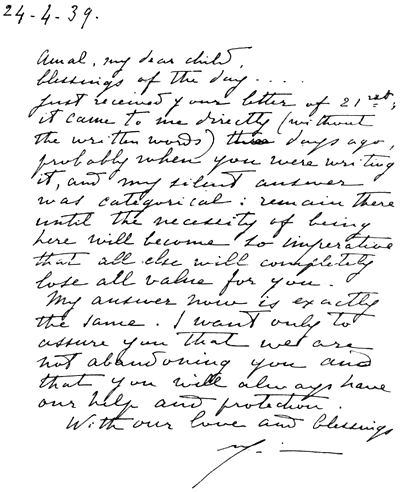 24-4-39.
Amal, my dear child,
blessings of the day....
Just received your letter of 21rst;
it came to me directly (without
the written words) three days ago,
probably when you were writing
it, and my silent answer
was categorical: remain there
until the necessity of being
here will become so imperative
that all else will completely
lose all value for you.
My answer now is exactly
the same. I want only to
assure you that we are
not abandoning you and
that you will always have
our help and protection.
With our love and blessings